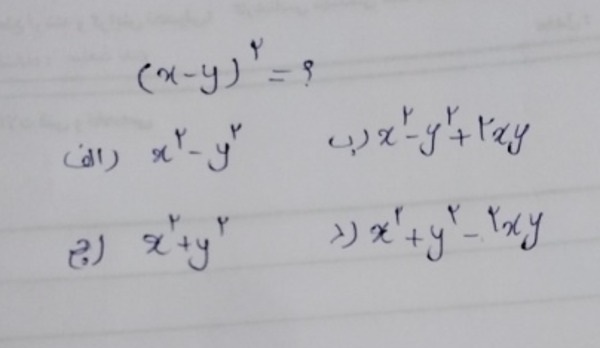 (x-y)^۲ = ؟
الف) x^۲-y^۲ ب) x^۲-y^۲+۲xy
ج) x^۲+y^۲ د) x^۲+y^۲-۲xy